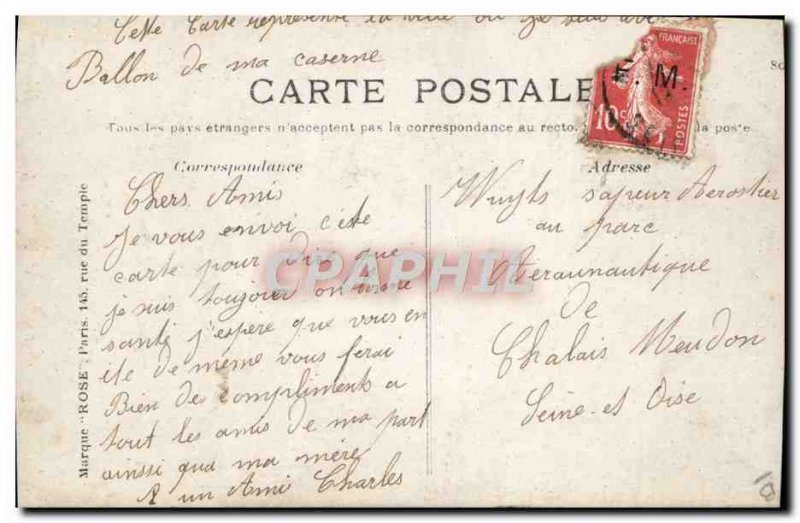 Cette Carte represente la ville ou je suis
Ballon de ma caserne
CARTE POSTALE
Tous les pays étrangers n'acceptent pas la correspondance au recto. la poste.
FRANÇAISE
F. M.
10c
POSTES
Correspondance
Chers Ami
Je vous envoi cete
carte pour dire que
je suis toujoier on bonne
santé j'espere que vous en
ite de même vous ferai
Bien de compliments a
tout les amis de ma part
ainsi qua ma mère
A un Ami Charles
Adresse
Wuyts sapeur Aerostier
au parc
Aeraunautique
de
Chalais Meudon
Seine et Oise
Marque "ROSE", Paris. 145, rue du Temple
CPAPHIL
10